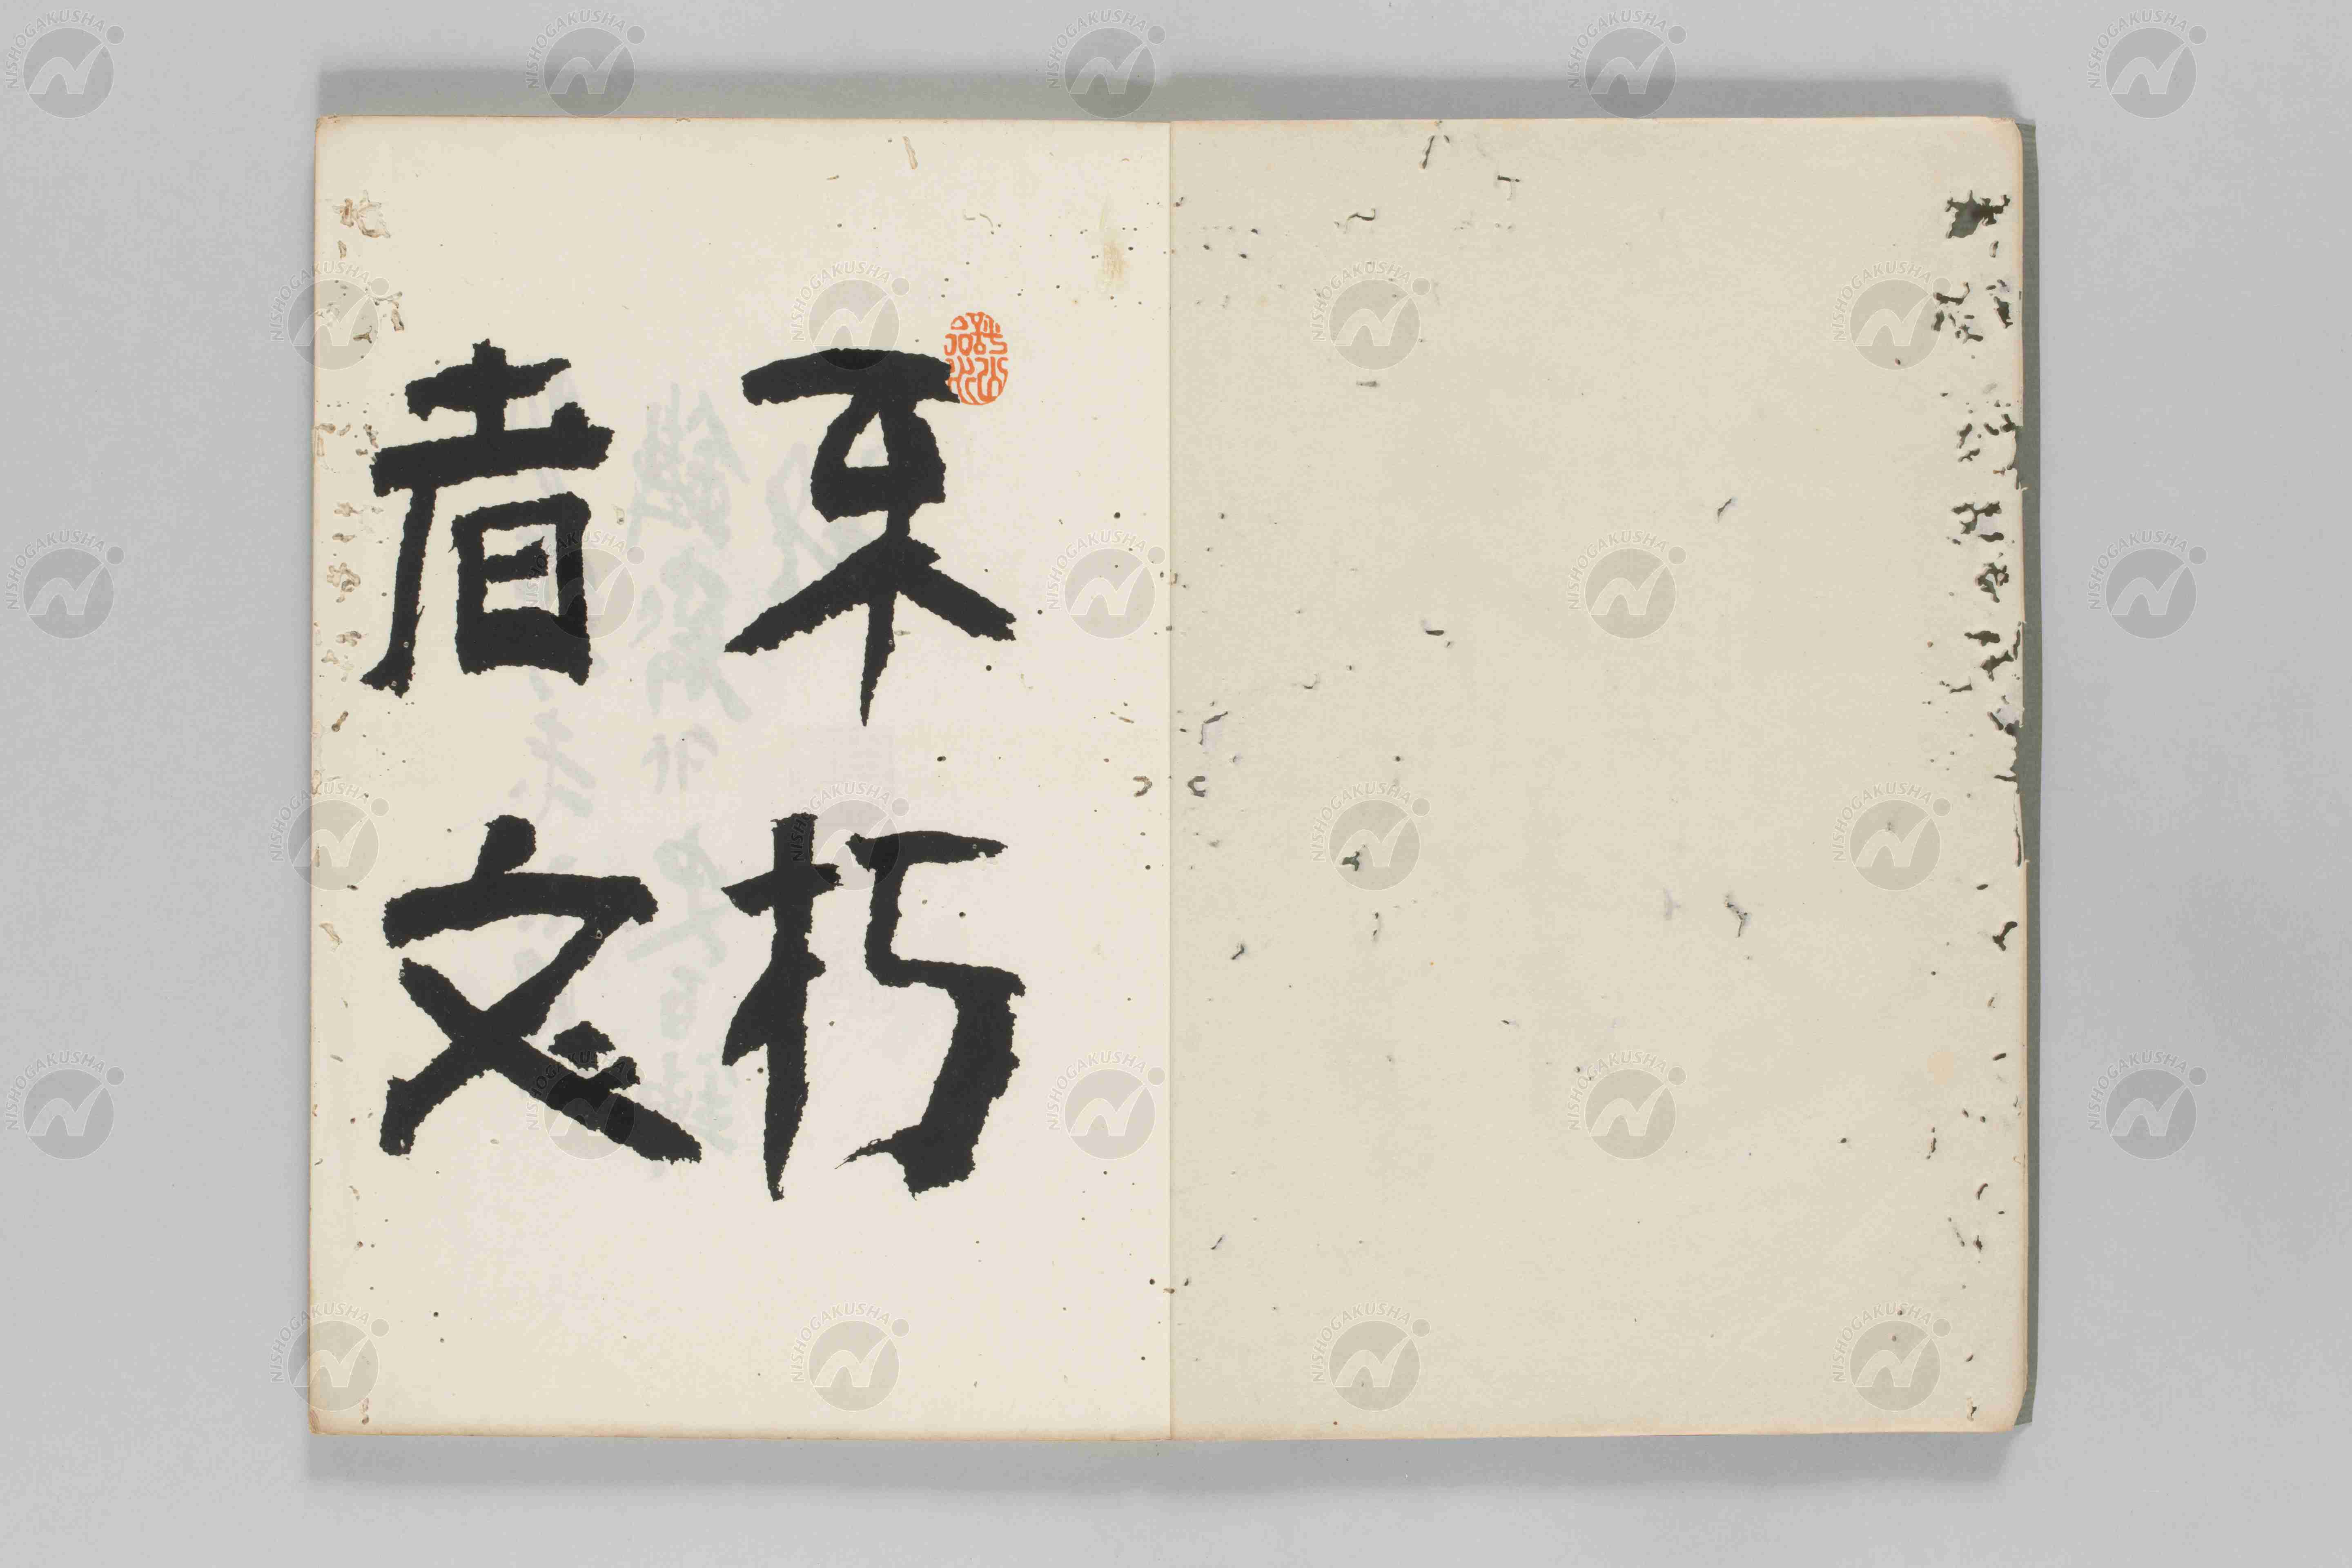 不朽
者文
NISHOGAKUSHA